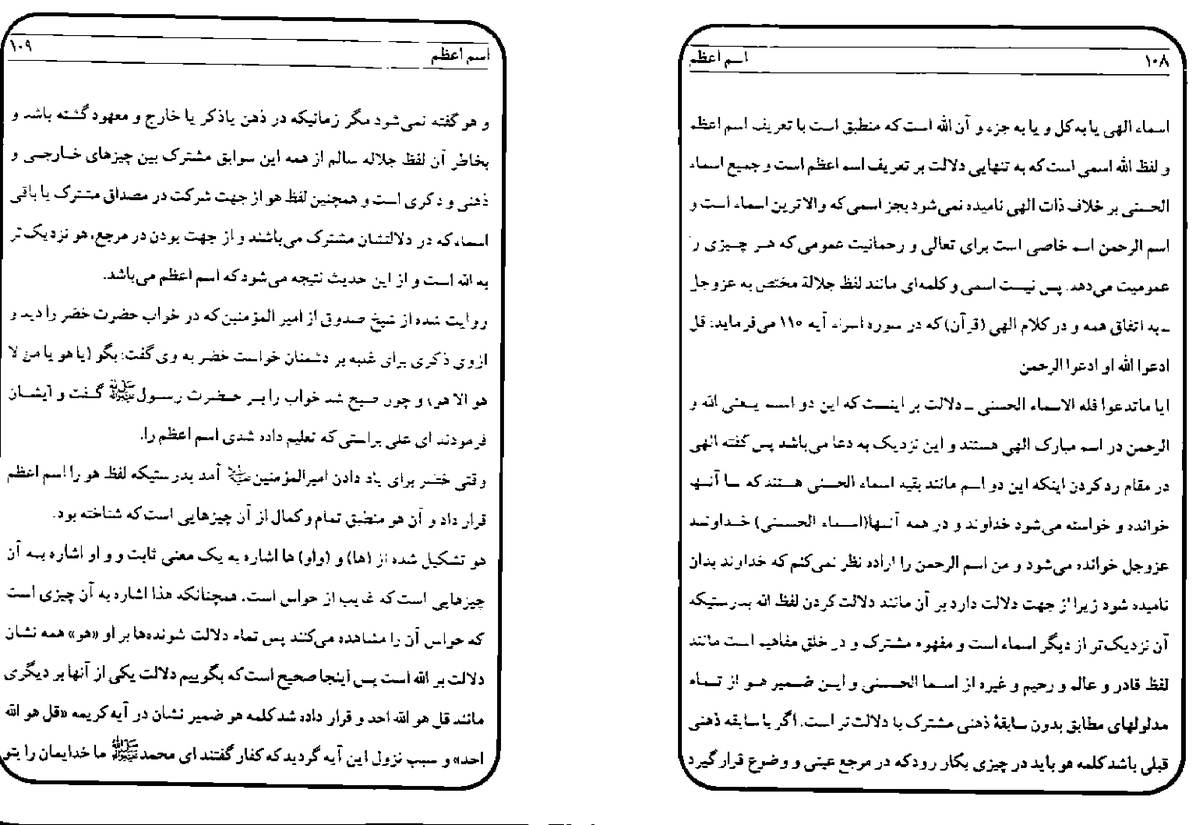 ۱۰۸
اسم اعظم
اسماء الهی یا به کل و یا به جزء و آن الله است که منطبق است با تعریف اسم اعظم
و لفظ الله اسمی است که به تنهایی دلالت بر تعریف اسم اعظم است و جمیع اسماء
الحسنی بر خلاف ذات الهی نامیده نمی‌شود بجز اسمی که والاترین اسماء است و
اسم الرحمن اسم خاصی است برای تعالی و رحمانیت عمومی که هر چیزی را
عمومیت می‌دهد. پس نیست اسمی و کلمه‌ای مانند لفظ جلالة مختص به عزوجل
ـ به اتفاق همه و در کلام الهی (قرآن) که در سوره اسراء آیه ۱۱۰ می‌فرماید: قل
ادعوا الله او ادعوا الرحمن
ایا ماتدعوا فله الاسماء الحسنی ـ دلالت بر اینست که این دو اسم یعنی الله و
الرحمن در اسم مبارک الهی هستند و این نزدیک به دعا می‌باشد پس گفته الهی
در مقام رد کردن اینکه این دو اسم مانند بقیه اسماء الحسنی هستند که با آنها
خوانده و خواسته می‌شود خداوند و در همه آنها(اسماء الحسنی) خداوند
عزوجل خوانده می‌شود و من اسم الرحمن را اراده نظر نمی‌کنم که خداوند بدان
نامیده شود زیرا از جهت دلالت دارد بر آن مانند دلالت کردن لفظ الله بدرستیکه
آن نزدیک‌تر از دیگر اسماء است و مفهوم مشترک و در خلق مفاهیم است مانند
لفظ قادر و عالم و رحیم و غیره از اسما الحسنی و این ضمیر هو از تمام
مدلولهای مطابق بدون سابقهٔ ذهنی مشترک با دلالت تر است. اگر با سابقه ذهنی
قبلی باشد کلمه هو باید در چیزی بکار رود که در مرجع عینی و وضوع قرار گیرد
اسم اعظم
۱۰۹
و هو گفته نمی‌شود مگر زمانیکه در ذهن یاذکر یا خارج و معهود گشته باشد و
بخاطر آن لفظ جلاله سالم از همه این سوابق مشترک بین چیزهای خارجی و
ذهنی و ذکری است و همچنین لفظ هو از جهت شرکت در مصداق مشترک یا باقی
اسماء که در دلالتشان مشترک می‌باشند و از جهت بودن در مرجع، هو نزدیک تر
به الله است و از این حدیث نتیجه می‌شود که اسم اعظم می‌باشد.
روایت شده از شیخ صدوق از امیر المؤمنین که در خواب حضرت خضر را دید و
ازوی ذکری برای غلبه بر دشمنان خواست خضر به وی گفت: بگو (یا هو یا من لا
هو الا هو) و چون صبح شد خواب را بر حضرت رسول ﷺ گفت و ایشان
فرمودند ای علی براستی که تعلیم داده شدی اسم اعظم را.
وقتی خضر برای یاد دادن امیرالمؤمنین آمد بدرستیکه لفظ هو را اسم اعظم
قرار داد و آن هو منطبق تمام و کمال از آن چیزهایی است که شناخته بود.
هو تشکیل شده از (ها) و (واو) ها اشاره به یک معنی ثابت و و او اشاره به آن
چیزهایی است که غایب از حواس است. همچنانکه هذا اشاره به آن چیزی است
که حواس آن را مشاهده می‌کنند پس تمام دلالت شونده‌ها بر او «هو» همه نشان
دلالت بر الله است پس اینجا صحیح است که بگوییم دلالت یکی از آنها بر دیگری
مانند قل هو الله احد و قرار داده شد کلمه هو ضمیر نشان در آیه کریمه «قل هو الله
احد» و سبب نزول این آیه گردید که کفار گفتند ای محمد ﷺ ما خدایمان را بتو